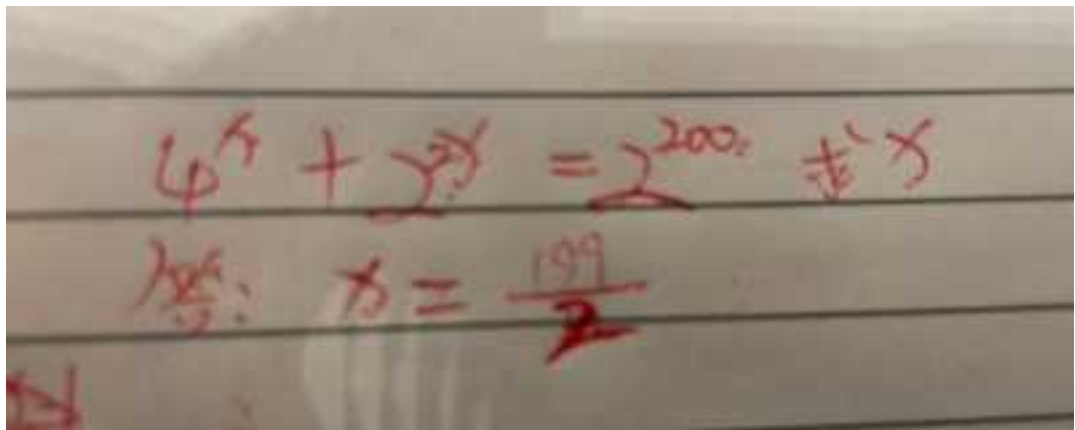 4^x + 2^{2x} = 2^{200} 求x
x = 199/2